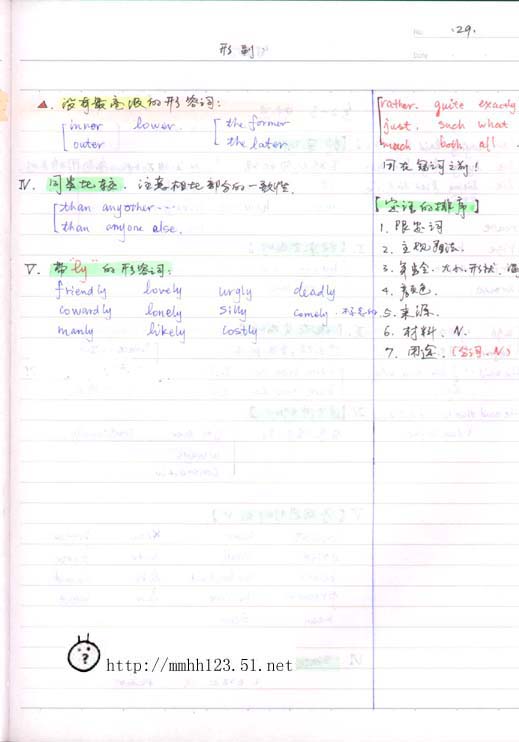 No. 29.
形副
Date
▲. 没有最高级的形容词:
inner lower. the former
outer the later
IV. 同类比较. 注意相比部分的一致性.
than anyother----
than anyone else.
V. 带"ly"的形容词:
friendly lovely urgly deadly
cowardly lonely silly comely.
manly likely costly
rather. quite exactly
just. such what
much both all
用在冠词之前!
【定语的排序】
1. 限定词
2. 主观看法.
3. 年龄. 大小. 形状.
4. 颜色.
5. 来源.
6. 材料. N.
7. 用途. (分词. N.)
http://mmhh123.51.net